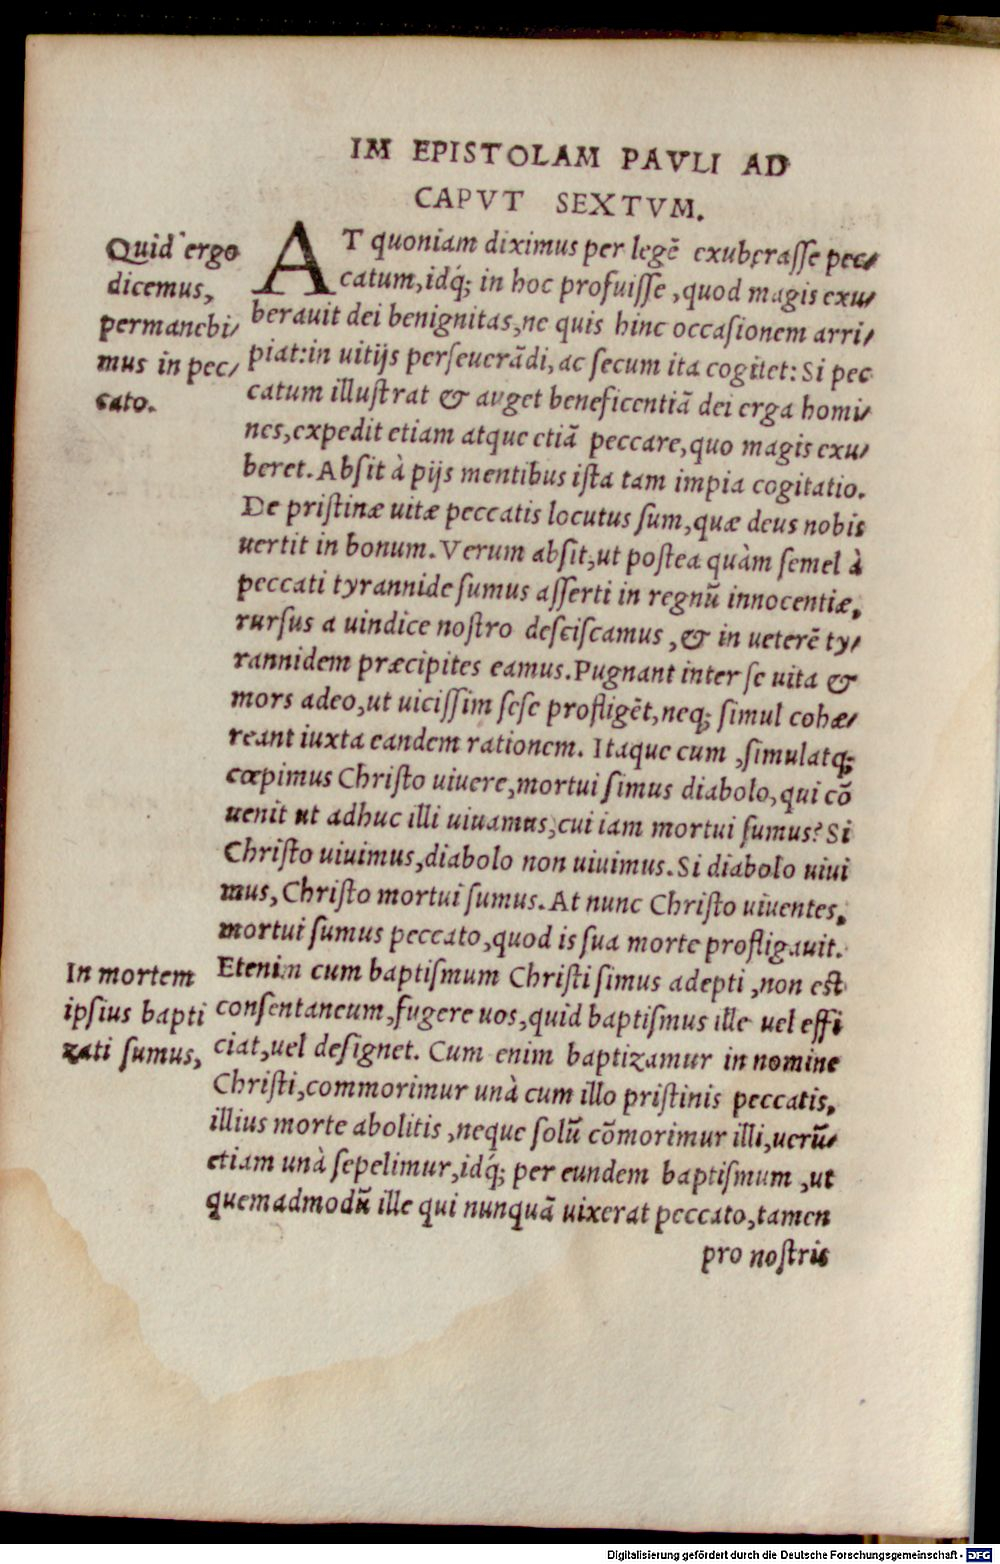 IM EPISTOLAM PAVLI AD
CAPVT SEXTVM.
Quid ergo
dicemus,
permanebi/
mus in pec/
cato.
AT quoniam diximus per legē exuberasse pec/
catum, idq́; in hoc profuisse, quod magis exu/
berauit dei benignitas, ne quis hinc occasionem arri/
piat: in uitijs perseuerādi, ac secum ita cogitet: Si pec
catum illustrat & auget beneficentiā dei erga homi/
nes, expedit etiam atque etiā peccare, quo magis exu/
beret. Absit à pijs mentibus ista tam impia cogitatio.
De pristinæ uitæ peccatis locutus sum, quæ deus nobis
uertit in bonum. Verum absit, ut postea quàm semel à
peccati tyrannide sumus asserti in regnū innocentiæ,
rursus a uindice nostro desciscamus, & in ueterē ty/
rannidem præcipites eamus. Pugnant inter se uita &
mors adeo, ut uicissim sese profligēt, neq; simul cohæ/
reant iuxta eandem rationem. Itaque cum, simulatq;
cœpimus Christo uiuere, mortui simus diabolo, qui cō
uenit ut adhuc illi uiuamus, cui iam mortui sumus? Si
Christo uiuimus, diabolo non uiuimus. Si diabolo uiui
mus, Christo mortui sumus. At nunc Christo uiuentes,
mortui sumus peccato, quod is sua morte profligauit.
In mortem
ipsius bapti
zati sumus,
Etenim cum baptismum Christi simus adepti, non est
consentaneum, fugere uos, quid baptismus ille uel effi
ciat, uel designet. Cum enim baptizamur in nomine
Christi, commorimur unà cum illo pristinis peccatis,
illius morte abolitis, neque solū cōmorimur illi, uerū/
etiam unà sepelimur, idq́; per eundem baptismum, ut
quemadmodū ille qui nunquā uixerat peccato, tamen
pro nostris
Digitalisierung gefördert durch die Deutsche Forschungsgemeinschaft - DFG